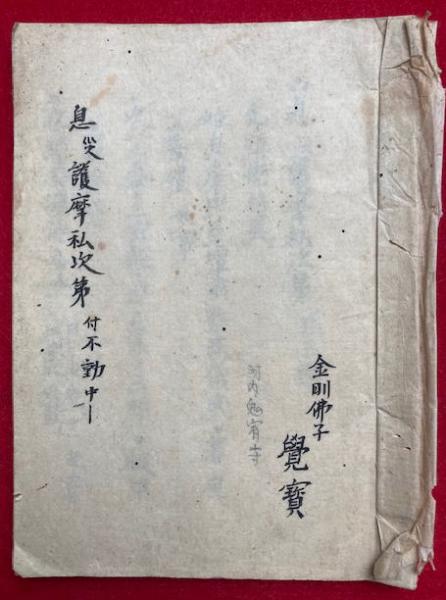 金剛佛子
覺寶
河内
息災護摩私次第 付不動中